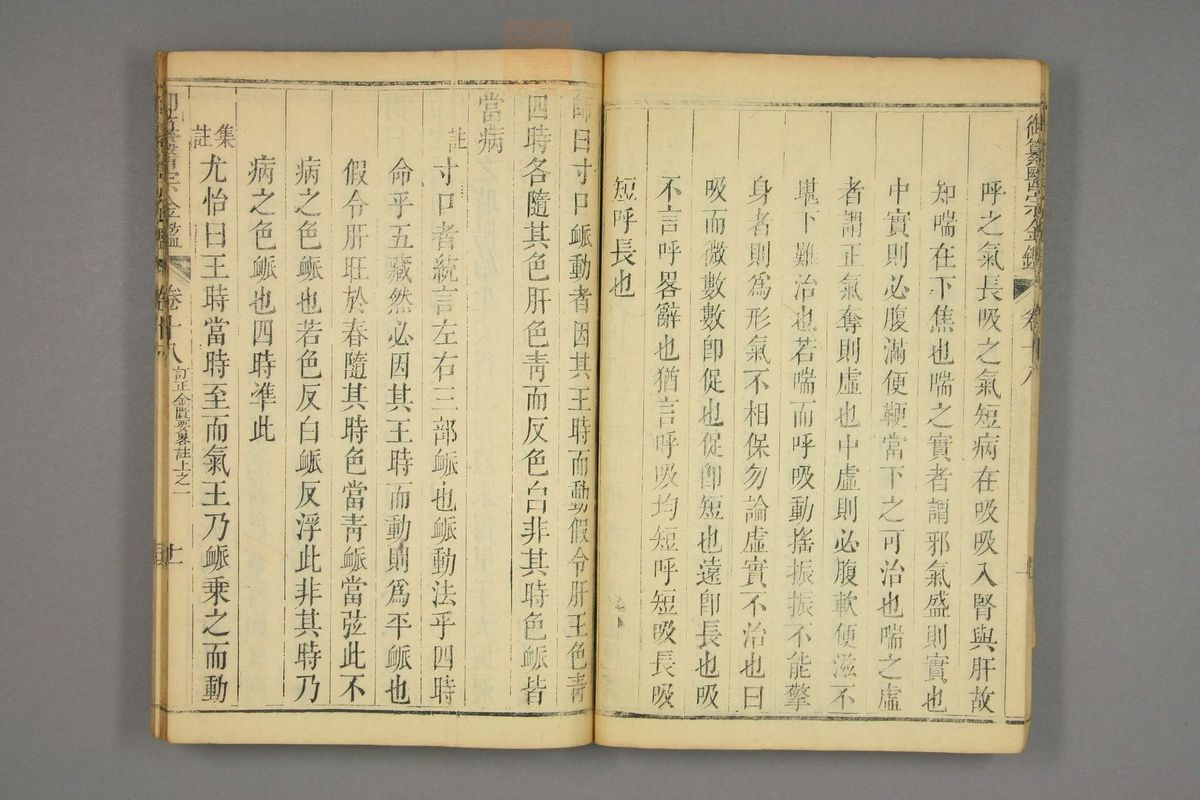 御纂醫宗金鑑 卷十八
呼之氣長吸之氣短病在吸吸入腎與肝故
知喘在下焦也喘之實者謂邪氣盛則實也
中實則必腹滿便鞕當下之可治也喘之虛
者謂正氣奪則虛也中虛則必腹軟便滋不
堪下難治也若喘而呼吸動搖振振不能擎
身者則爲形氣不相保勿論虛實不治也曰
吸而微數數卽促也促卽短也遠卽長也吸
不言呼畧辭也猶言呼吸均短呼短吸長吸
短呼長也
師曰寸口脈動者因其王時而動假令肝王色靑
四時各隨其色肝色靑而反色白非其時色脈皆
當病
註
寸口者統言左右三部脈也脈動法乎四時
命乎五藏然必因其王時而動則爲平脈也
假令肝旺於春隨其時色當靑脈當弦此不
病之色脈也若色反白脈反浮此非其時乃
病之色脈也四時準此
集註
尤怡曰王時當時至而氣王乃脈乘之而動
卷十八 訂正金匱要畧註上之一